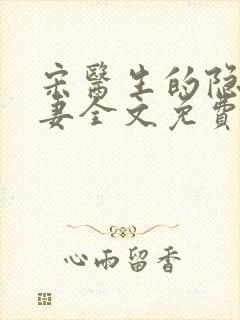 宋醫生的隐
妻全文免費
心雨留香